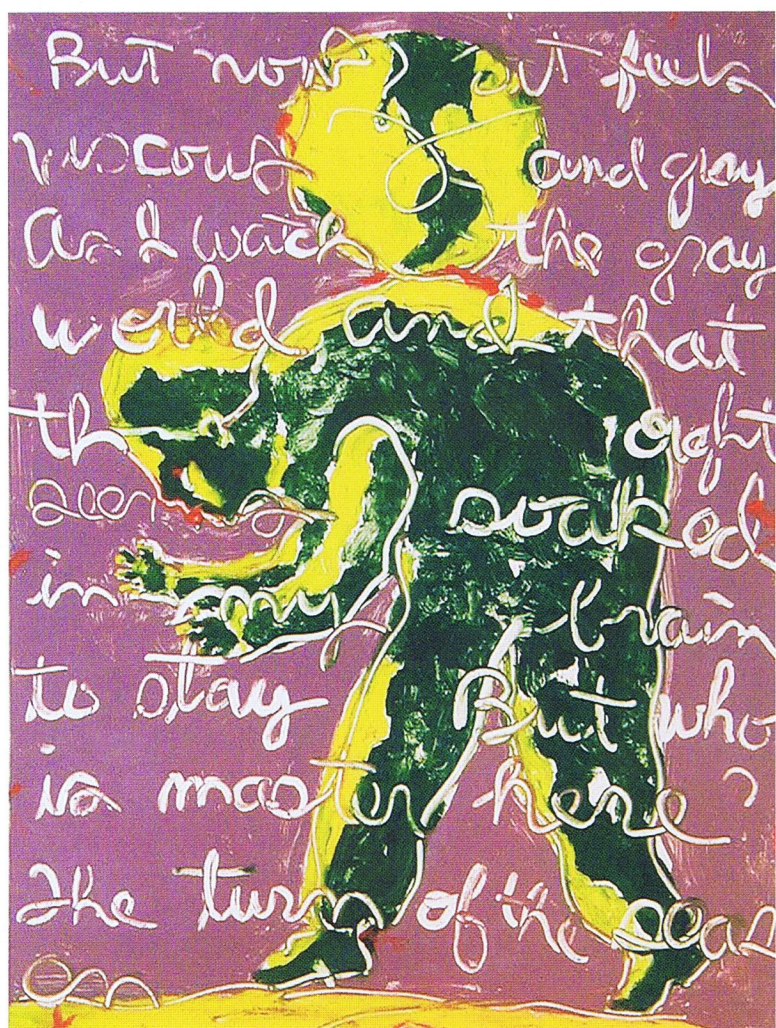 But now it feels
viscous and gray
As I watch the gray
world, and that
th ought
seems soaked
in my brain
to stay But who
is master here?
The turn of the seas
on